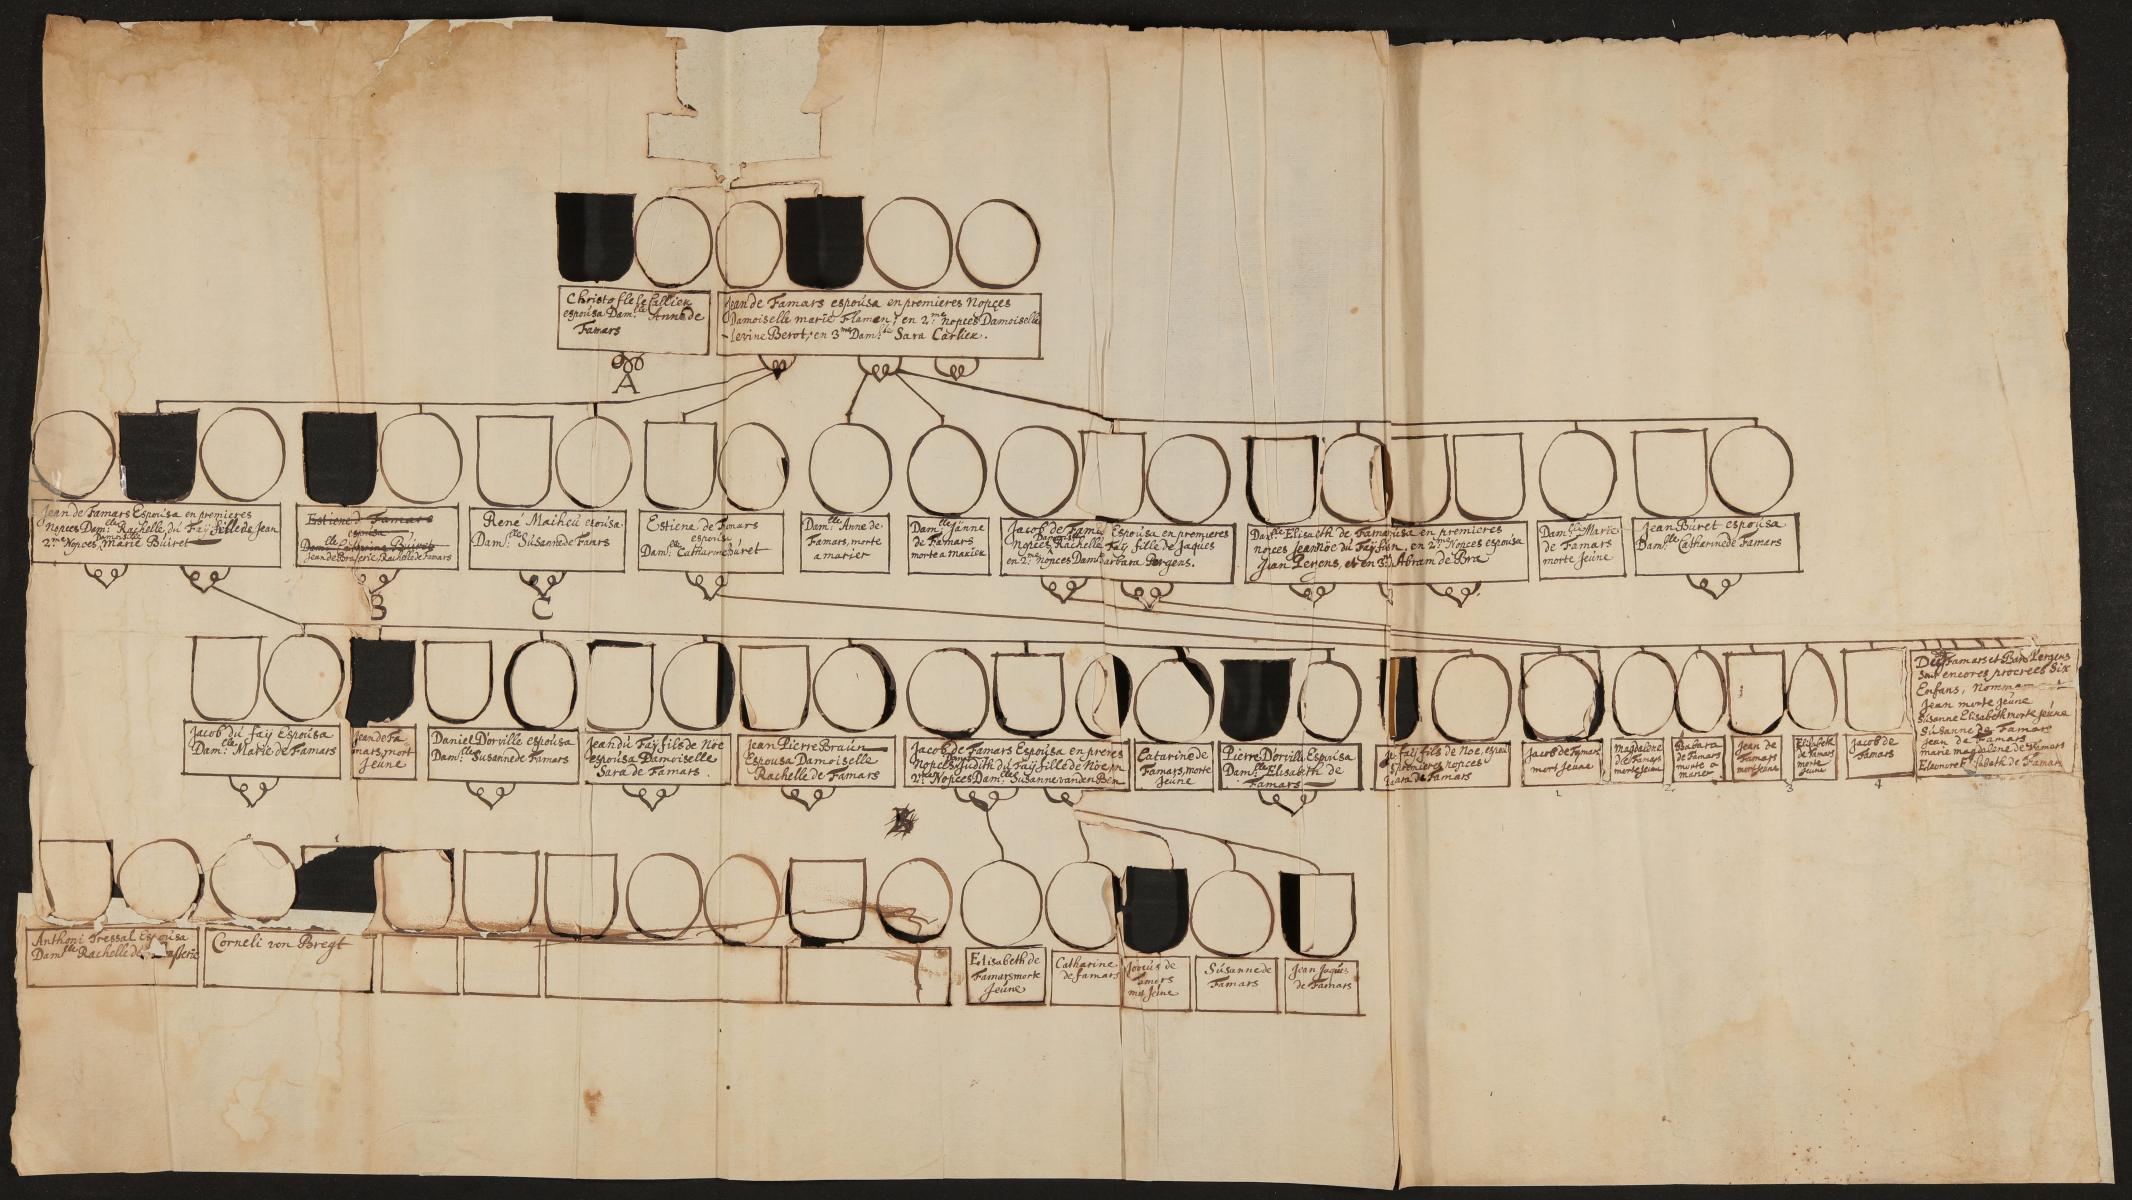 Christofle le Callier
espousa Dam.lle Anne de
Famars
Jean de Famars espousa en premieres Nopçes
Damoiselle marie Flamen, en 2.me nopces Damoiselle
Levine Berot, en 3me Dam.lle Sara Carlier.
A
Jean de Famars Espousa en premieres
Nopces Dam.lle Rachelle du Faÿ fille de Jean
2.me Nopces Damoiselle Marie Buiret
Estiene d Famars
espousa
Dam.lle Catharine Buiret
Jean de Rachelle de Famars
René Maiheu espousa
Dam.lle Susanne de Famars
Estiene de Famars
espousa
Dam.lle Catharine
Dam.lle Anne de
Famars, morte
a marier
Dam.lle Janne
de Famars
morte a marier
Jacob de Espousa en premieres
nopces Damoiselle Rachelle Faÿ fille de Jaques
en 2.me nopces Dam. Pergens.
Dam.lle Elisabth de en premieres
nopces du Faÿ en 2.me Nopces espousa
Jean Pergens, et en 3. Abram de Bra
Dam.lle Marie
de Famars
morte Jeune
Jean Buret espousa
Dam.lle Catharine de Famars
B
C
Jacob du faÿ Espousa
Dam.lle Marie de Famars
Jean de Fa
mars, mort
Jeune
Daniel D'orville espousa
Dam.lle Susanne de Famars
Jean du Faÿ fils de Noe
espousa Damoiselle
Sara de Famars.
Jean Pierre Braun
Espousa Damoiselle
Rachelle de Famars
Jacob de Famars Espousa en
Nopces Judith du Faÿ fille de Noe, en
2.me Nopces Dam.lle Susanne vanden
Catarine de
Famars, morte
Jeune
Pierre D'orville Espousa
Dam.lle Elisabeth de
Famars
faÿ fils de Noe, espou
premieres nopces
de Famars
Jacob de Famars
mort Jeune
Magdalene
de Famars
morte Jeune
Babara
de Famars
morte a
marier
Jean de
Famars
mort Jeune
Elisabeth
de Famars
morte
Jeune
Jacob de
Famars
Famars et Pergens
sont encores procrees Six
Enfans,
Jean morte Jeune
Susanne Elisabeth morte Jeune
Susanne de Famars
Jean de Famars
marie magdalene de Famars
Eleonore de Famars
1
2
3
4
Anthoni Dressal Espousa
Dam.lle Rachelle de
Corneli von Bregt
Elisabeth de
Famars morte
Jeune
Catharine
de famars
de
Famars
Jeune
Susanne de
Famars
Jean Jaques
de Famars